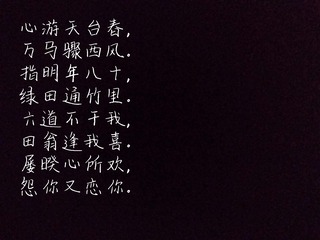 心游天台春,
万马骤西风.
指明年八十,
绿田通竹里.
六道不干我,
田翁逢我喜.
屡暌心所欢,
怨你又恋你.